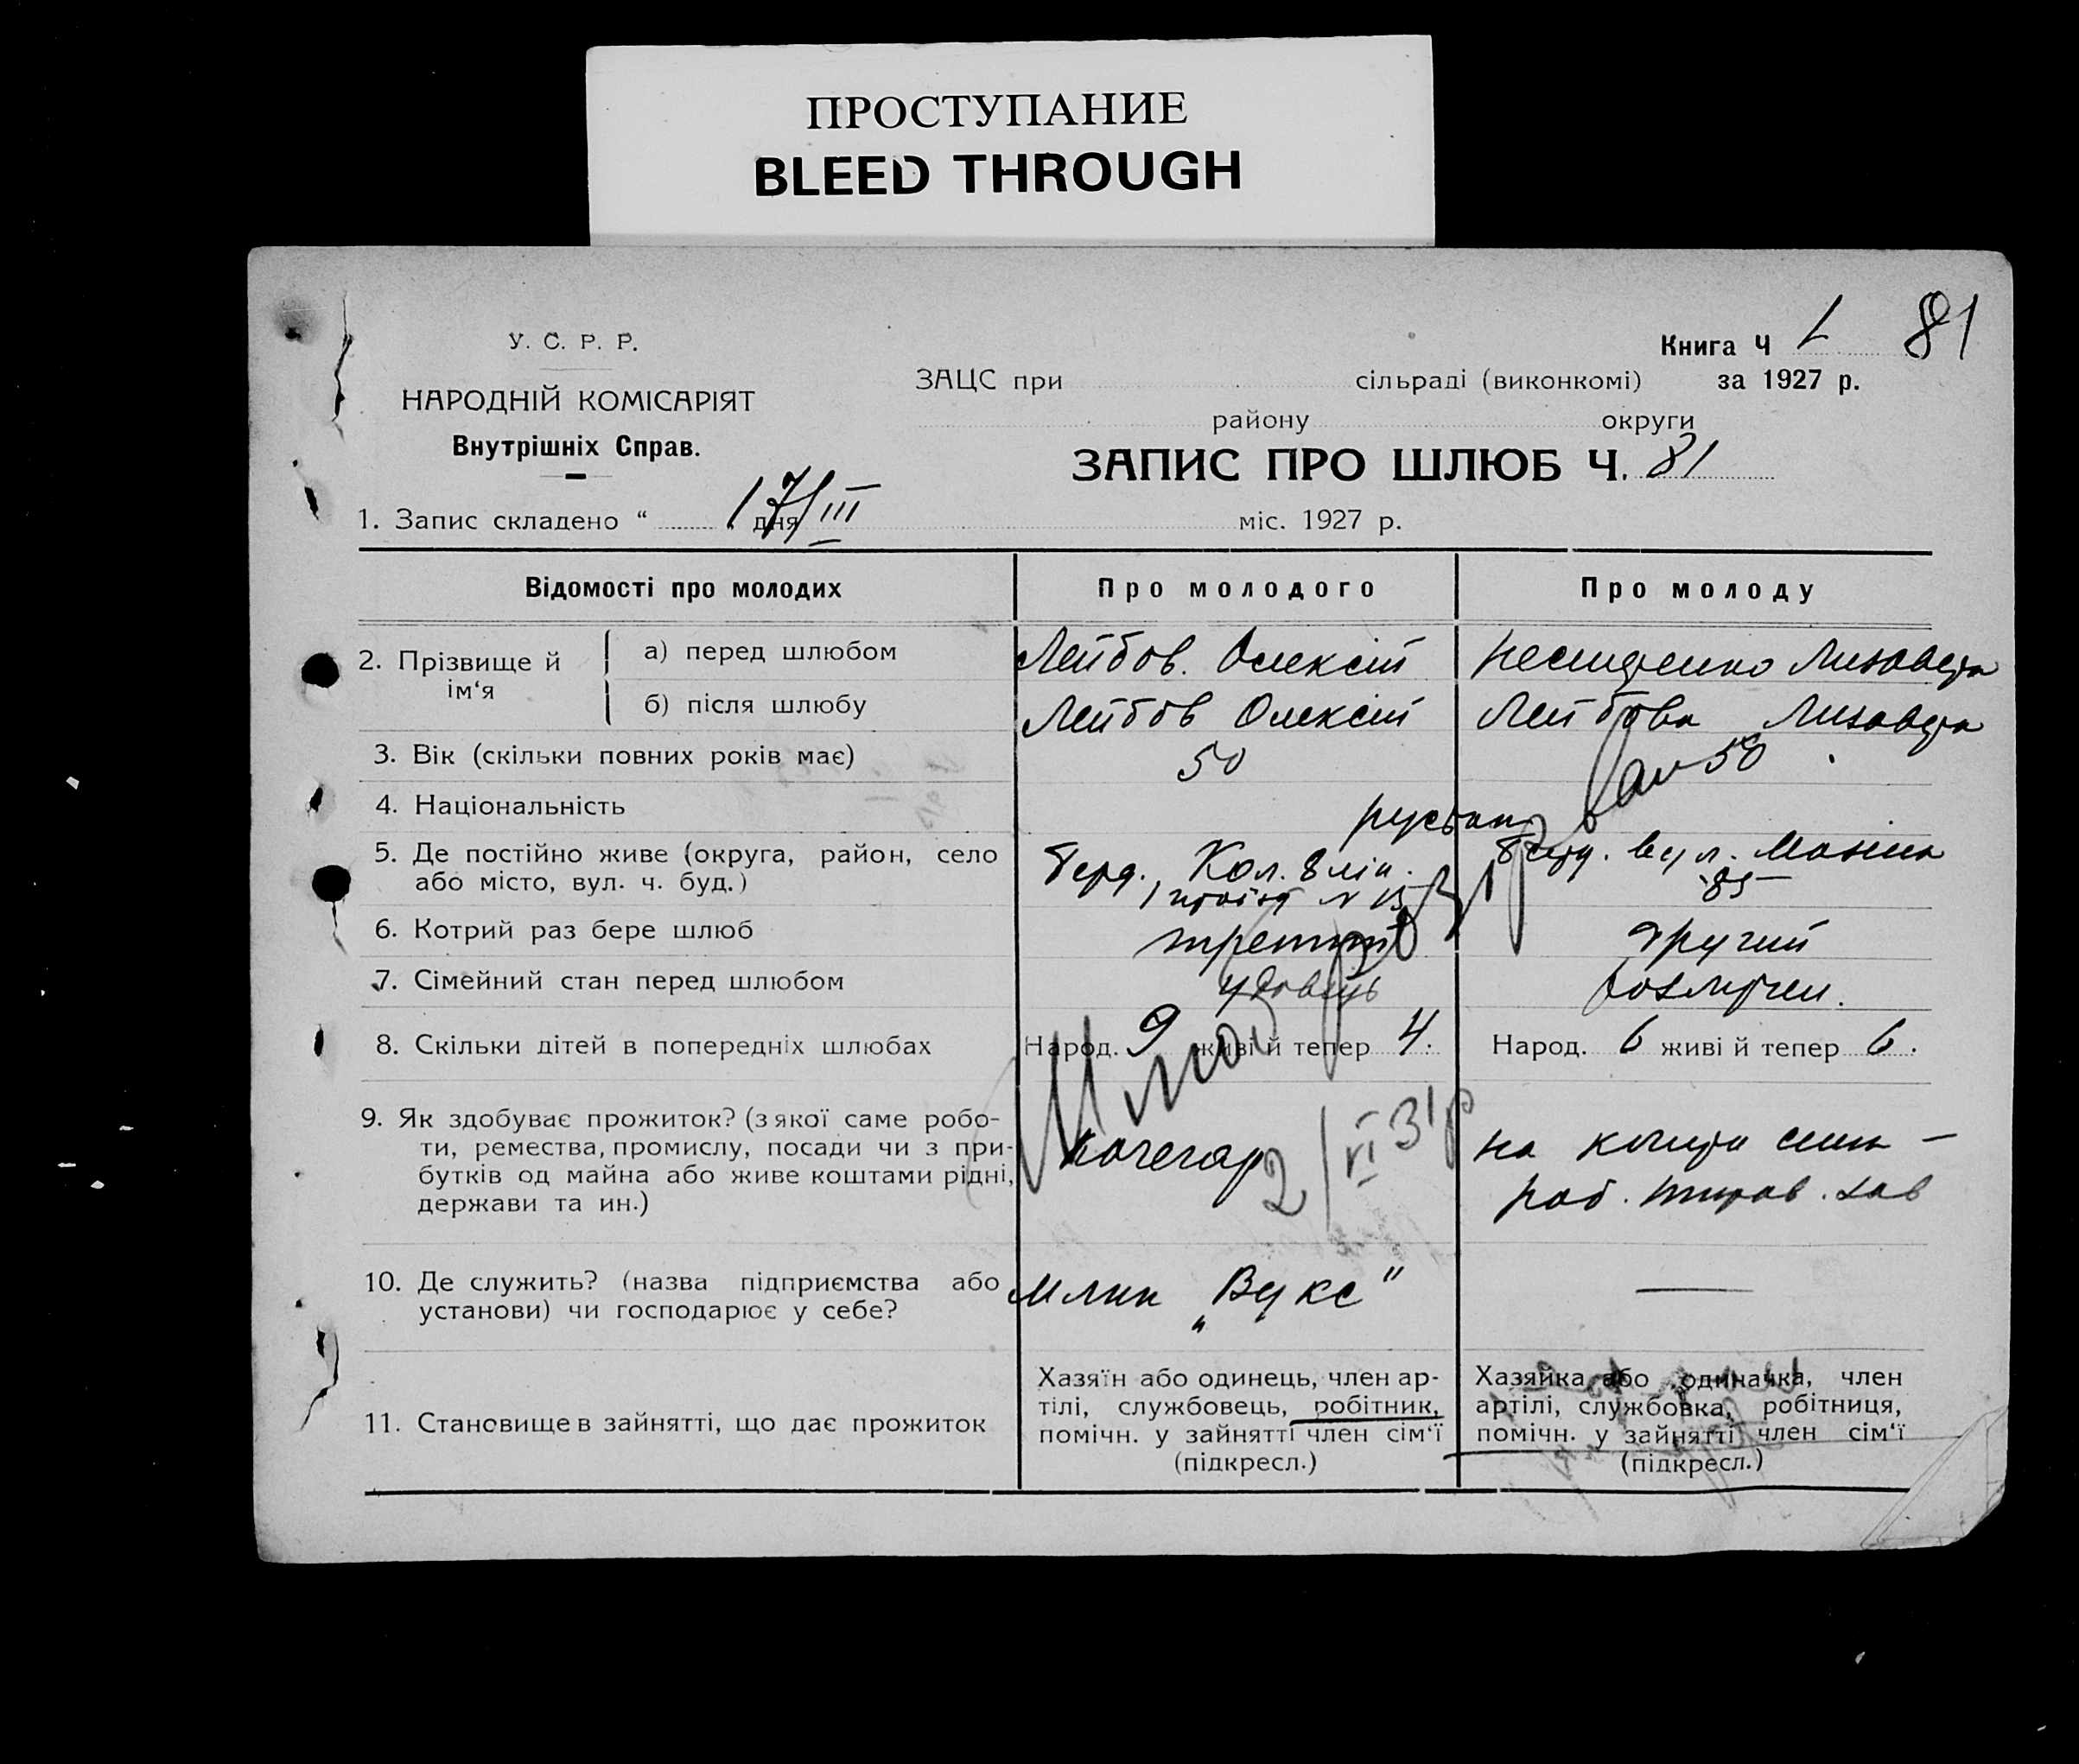 ПРОСТУПАНИЕ
BLEED THROUGH
У. С. Р. Р.
НАРОДНІЙ КОМІСАРІЯТ
Внутрішніх Справ.
Книга Ч 1 81
ЗАЦС при сільраді (виконкомі) за 1927 р.
району округи
ЗАПИС ПРО ШЛЮБ Ч. 81
1. Запис складено “ 17/III дня міс. 1927 р.
Відомості про молодих Про молодого Про молоду
2. Прізвище й ім‘я
а) перед шлюбом Лейбов. Олексій Лизавета
б) після шлюбу Лейбов Олексій Лейбова Лизавета
3. Вік (скільки повних років має) 50 50
4. Національність
5. Де постійно живе (округа, район, село Берд., Кол. 8 лін. Берд. вул.
або місто, вул. ч. буд.) 85
6. Котрий раз бере шлюб третій другий
7. Сімейний стан перед шлюбом удовець
8. Скільки дітей в попередніх шлюбах Народ. 9 живі й тепер 4. Народ. 6 живі й тепер 6.
9. Як здобуває прожиток? (з якої саме робо-
ти, ремества, промислу, посади чи з при- кочегар на кошти сина —
бутків од майна або живе коштами рідні, роб. зав
держави та ин.)
2/VI 31р
10. Де служить? (назва підприємства або
установи) чи господарює у себе? Млин „Вукс“ —
11. Становище в зайнятті, що дає прожиток
Хазяїн або одинець, член ар-
тілі, службовець, робітник,
помічн. у зайнятті член сім‘ї
(підкресл.)
Хазяйка або одиначка, член
артілі, службовка, робітниця,
помічн. у зайнятті член сім‘ї
(підкресл.)